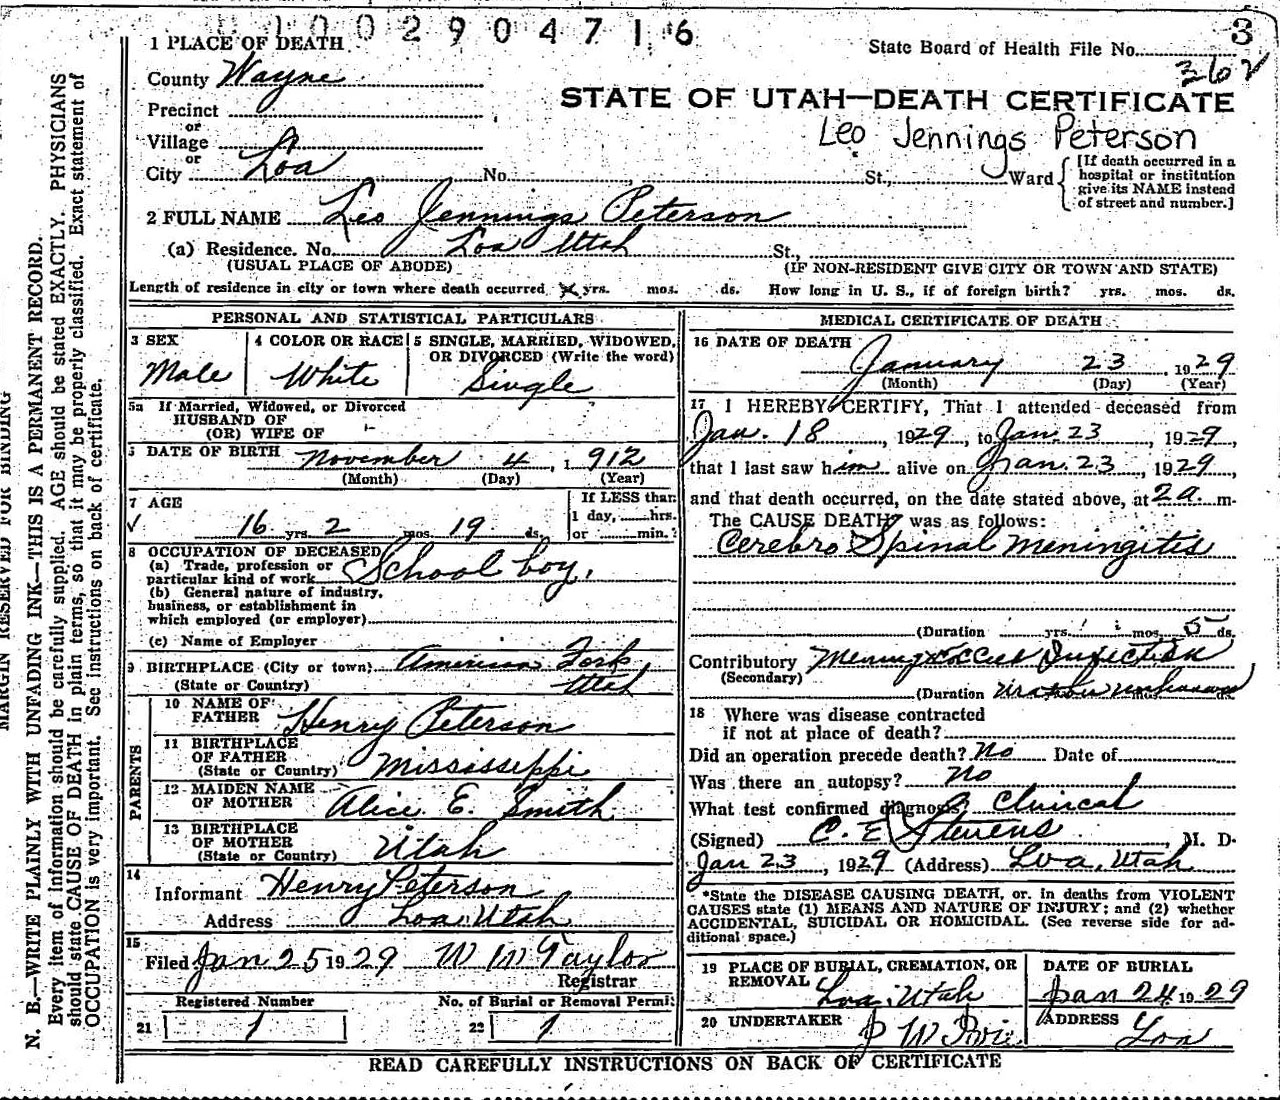 1002904716
3
State Board of Health File No.
362
1 PLACE OF DEATH
County Wayne
STATE OF UTAH—DEATH CERTIFICATE
Precinct
or
Village
Leo Jennings Peterson
or
City Loa No. St., Ward
[If death occurred in a
hospital or institution
give its NAME instead
of street and number.]
2 FULL NAME Leo Jennings Peterson
(a) Residence. No. Loa Utah St.,
(USUAL PLACE OF ABODE) (IF NON-RESIDENT GIVE CITY OR TOWN AND STATE)
Length of residence in city or town where death occurred yrs. mos. ds. How long in U. S., if of foreign birth? yrs. mos. ds.
PERSONAL AND STATISTICAL PARTICULARS
3 SEX
Male
4 COLOR OR RACE
White
5 SINGLE, MARRIED, WIDOWED,
OR DIVORCED (Write the word)
Single
5a If Married, Widowed, or Divorced
HUSBAND OF
(OR) WIFE OF
DATE OF BIRTH November 4, 1912
(Month) (Day) (Year)
7 AGE
16 yrs. 2 mos. 19 ds.
If LESS than
1 day, hrs.
or min.?
8 OCCUPATION OF DECEASED
(a) Trade, profession or
particular kind of work School boy.
(b) General nature of industry,
business, or establishment in
which employed (or employer)
(c) Name of Employer
9 BIRTHPLACE (City or town) American Fork
(State or Country) Utah
PARENTS
10 NAME OF
FATHER Henry Peterson
11 BIRTHPLACE
OF FATHER
(State or Country) Mississippi
12 MAIDEN NAME
OF MOTHER Alice E. Smith
13 BIRTHPLACE
OF MOTHER
(State or Country) Utah
14
Informant Henry Peterson
Address Loa, Utah
15
Filed Jan 25 1929 W M Taylor
Registrar
Registered Number No. of Burial or Removal Permit
21 1 22 1
MEDICAL CERTIFICATE OF DEATH
16 DATE OF DEATH
January 23, 1929
(Month) (Day) (Year)
17 I HEREBY CERTIFY, That I attended deceased from
Jan. 18, 1929, to Jan. 23, 1929,
that I last saw him alive on Jan. 23, 1929,
and that death occurred, on the date stated above, at 2a m.
The CAUSE DEATH was as follows:
Cerebro Spinal Meningitis
(Duration yrs. mos. 5 ds.
Contributory Infection
(Secondary)
(Duration
18 Where was disease contracted
if not at place of death?
Did an operation precede death? No Date of
Was there an autopsy? no
What test confirmed diagnosis? Clinical
(Signed) C. E. Stevens, M. D.
Jan 23, 1929 (Address) Loa, Utah
*State the DISEASE CAUSING DEATH, or, in deaths from VIOLENT
CAUSES state (1) MEANS AND NATURE OF INJURY; and (2) whether
ACCIDENTAL, SUICIDAL OR HOMICIDAL. (See reverse side for ad-
ditional space.)
19 PLACE OF BURIAL, CREMATION, OR
REMOVAL Loa, Utah
DATE OF BURIAL
Jan 24 1929
20 UNDERTAKER
ADDRESS
Loa
READ CAREFULLY INSTRUCTIONS ON BACK OF CERTIFICATE
MARGIN RESERVED FOR BINDING
N. B.—WRITE PLAINLY WITH UNFADING INK—THIS IS A PERMANENT RECORD.
Every item of information should be carefully supplied. AGE should be stated EXACTLY. PHYSICIANS
should state CAUSE OF DEATH in plain terms, so that it may be properly classified. Exact statement of
OCCUPATION is very important. See instructions on back of certificate.